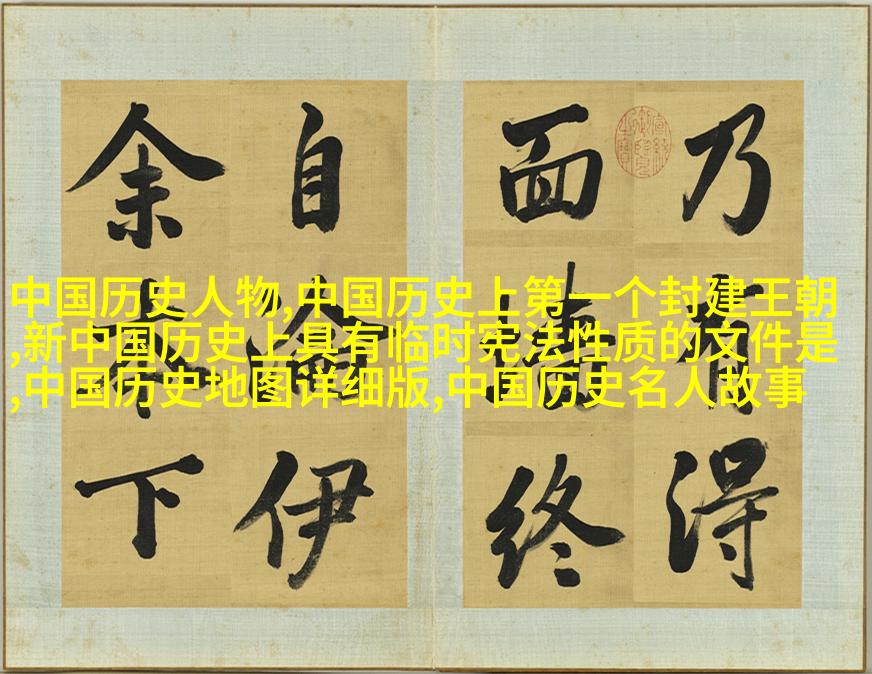 中国历史人物,中国历史上第一个封建王朝
,新中国历史上具有临时宪法性质的文件是
,中国历史地图详细版,中国历史名人故事
乃有得
面墻終
自淪伊
余本下